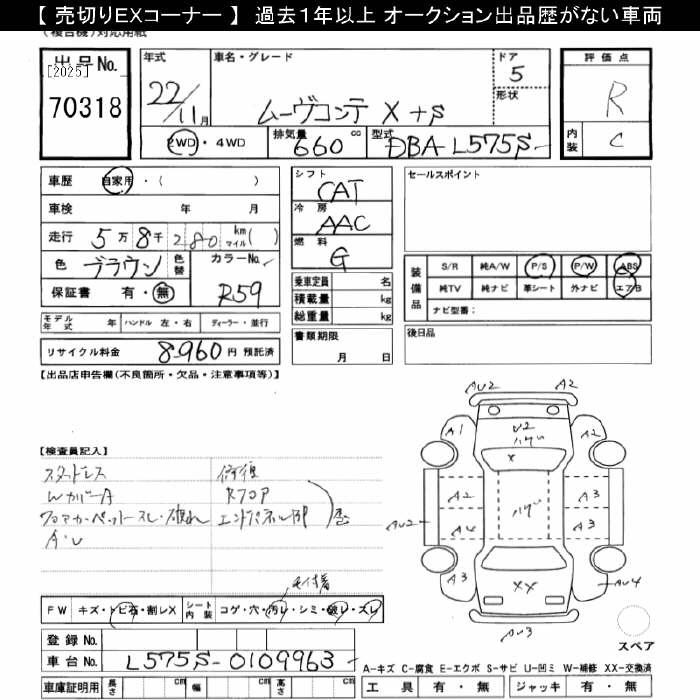 【 売切りEXコーナー 】 過去１年以上 オークション出品歴がない車両
(複合機)対応用紙
出品No.
[2025]
70318
年式
22/11月
車名・グレード
ムーヴコンテ X+S
ドア
5
形状
評価点
R
内装
C
2WD・4WD
排気量
660
cc
型式
DBA-L575S-
車歴
自家用・( )
車検 年 月
走行 5万8千280 km マイル( )
色
ブラウン
色替
カラーNo.
R59
保証書 有・無
シフト
CAT
冷房
AAC
燃料
G
乗車定員 名
積載量 kg
総重量 kg
セールスポイント
装備品
S/R 純A/W P/S P/W ABS
純TV 純ナビ 革シート 外ナビ エアB
ナビ型番：
モデル年式 年 ハンドル 左・右 ディーラー・並行
リサイクル料金 8960円 預託済
書類期限
月 日
後日品
【出品店申告欄(不良箇所・欠品・注意事項等)】
【検査員記入】
スタッドレス
WカバーA
フロアカーペットスレ・破れ
修復
R70P
エンドパネルBP
歴
AU2
A2
A1
U2
ハゲ
A3
X
A2
ハゲ
A3
AU2
A4
A3
A3
XX
AU4
AU3
スペア
FW キズ・トビ石・割レX
シート内装 コゲ・穴・汚レ・シミ・破レ・スレ
登録No.
車台No. L575S-0109963-
A-キズ C-腐食 E-エクボ S-サビ U-凹ミ W-補修 XX-交換済
車庫証明用 長さ cm 幅 cm 高さ cm
工具 有・無 ジャッキ 有・無